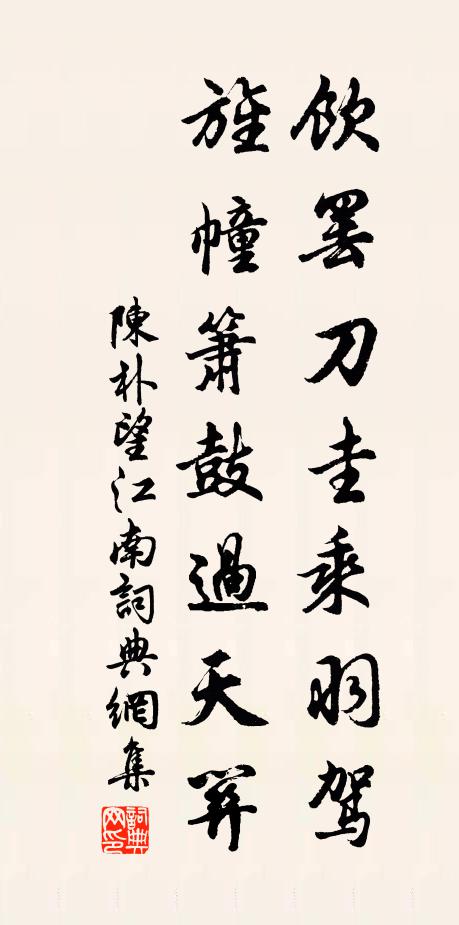 飲罷刀圭乘羽駕
旌幢簫鼓過天關
陳朴望江南詞典網集
詞典
网印